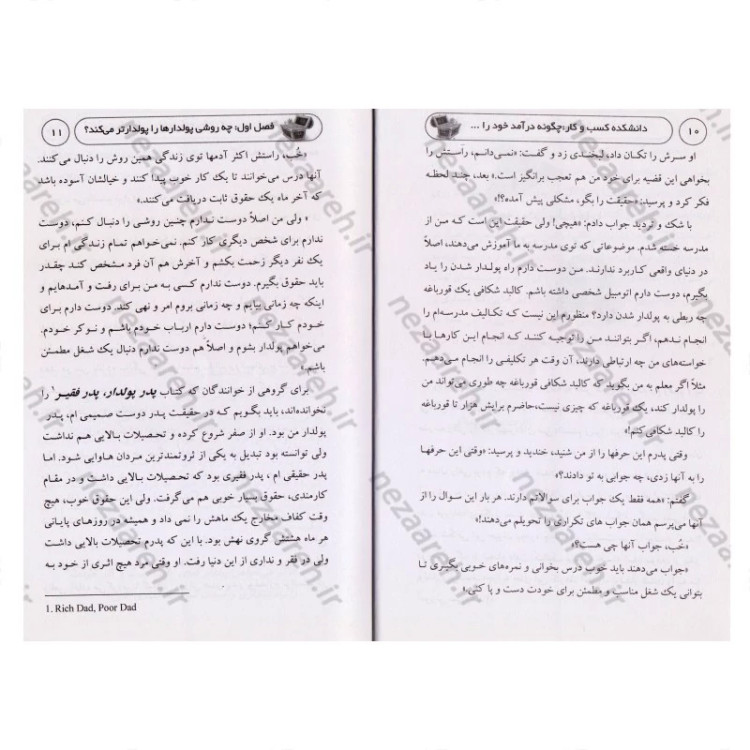 ۱۰
دانشکده کسب و کار؛چگونه درآمد خود را ...
او سرش را تکان داد، لبخندی زد و گفت: «نمی‌دانم، راستش را
بخواهی این قضیه برای خود من هم تعجب برانگیز است.» بعد، چند لحظه
فکر کرد و پرسید: «حقیقت را بگو، مشکلی پیش آمده؟!»
با شک و تردید جواب دادم: «هیچی! ولی حقیقت این است که من از
مدرسه خسته شدم. موضوعاتی که توی مدرسه به ما آموزش می‌دهند، اصلاً
در دنیای واقعی کاربرد ندارند. من دوست دارم راه پولدار شدن را یاد
بگیرم، دوست دارم اتومبیل شخصی داشته باشم. کالبد شکافی یک قورباغه
چه ربطی به پولدار شدن دارد؟ منظورم این نیست که تکالیف مدرسه‌ام را
انجام ندهم، اگر بتوانند من را توجیه کنند که انجام این کارها با
خواسته‌های من چه ارتباطی دارند، آن وقت هر تکلیفی را انجام می‌دهم.
مثلاً اگر معلم به من بگوید که کالبد شکافی قورباغه چه طوری می‌تواند من
را پولدار کند، یک قورباغه که چیزی نیست،حاضرم برایش هزار تا قورباغه
را کالبد شکافی کنم!»
وقتی پدرم این حرفها را از من شنید، خندید و پرسید: «وقتی این حرفها
را به آنها زدی، چه جوابی به تو دادند؟»
گفتم: «همه فقط یک جواب برای سوالاتم دارند. هر بار این سوال را از
آنها می‌پرسم همان جواب های تکراری را تحویلم می‌دهند!»
«خُب، جواب آنها چی هست؟»
«جواب می‌دهند باید خوب درس بخوانی و نمره‌های خوبی بگیری تا
بتوانی یک شغل مناسب و مطمئن برای خودت دست و پا کنی.»
فصل اول: چه روشی پولدارها را پولدارتر می‌کند؟
۱۱
«خُب، راستش اکثر آدمها توی زندگی همین روش را دنبال می‌کنند.
آنها درس می‌خوانند تا یک کار خوب پیدا کنند و خیالشان آسوده باشد
که آخر ماه یک حقوق ثابت دریافت می‌کنند.»
« ولی من اصلاً دوست ندارم چنین روشی را دنبال کنم، دوست
ندارم برای شخص دیگری کار کنم. نمی‌خواهم تمام زندگی ام برای
یک نفر دیگر زحمت بکشم و آخرش هم آن فرد مشخص کند چقدر
باید حقوق بگیرم. دوست ندارم کسی به من برای رفت و آمدهایم و
اینکه چه زمانی بیایم و چه زمانی بروم امر و نهی کند. دوست دارم برای
خودم کار کنم؛ دوست دارم ارباب خودم باشم و نوکر خودم.
می‌خواهم پولدار بشوم و اصلاً هم دوست ندارم دنبال یک شغل مطمئن
باشم.»
برای گروهی از خوانندگان که کتاب پدر پولدار، پدر فقیر۱ را
نخوانده‌اند، باید بگویم که در حقیقت پدر دوست صمیمی ام، پدر
پولدار من بود. او از صفر شروع کرده و تحصیلات بالایی هم نداشت
ولی توانسته بود تبدیل به یکی از ثروتمندترین مردان هاوایی شود. اما
پدر حقیقی ام ، پدر فقیری بود که تحصیلات بالایی داشت و در مقام
کارمندی، حقوق بسیار خوبی هم می‌گرفت. ولی این حقوق خوب، هیچ
وقت کفاف مخارج یک ماهش را نمی داد و همیشه در روزهای پایانی
هر ماه هشتش گروی نهش بود. با این که پدرم تحصیلات بالایی داشت
ولی در فقر و نداری از این دنیا رفت. او وقتی مرد هیچ اثری از خود به
1. Rich Dad, Poor Dad
nezaareh.ir